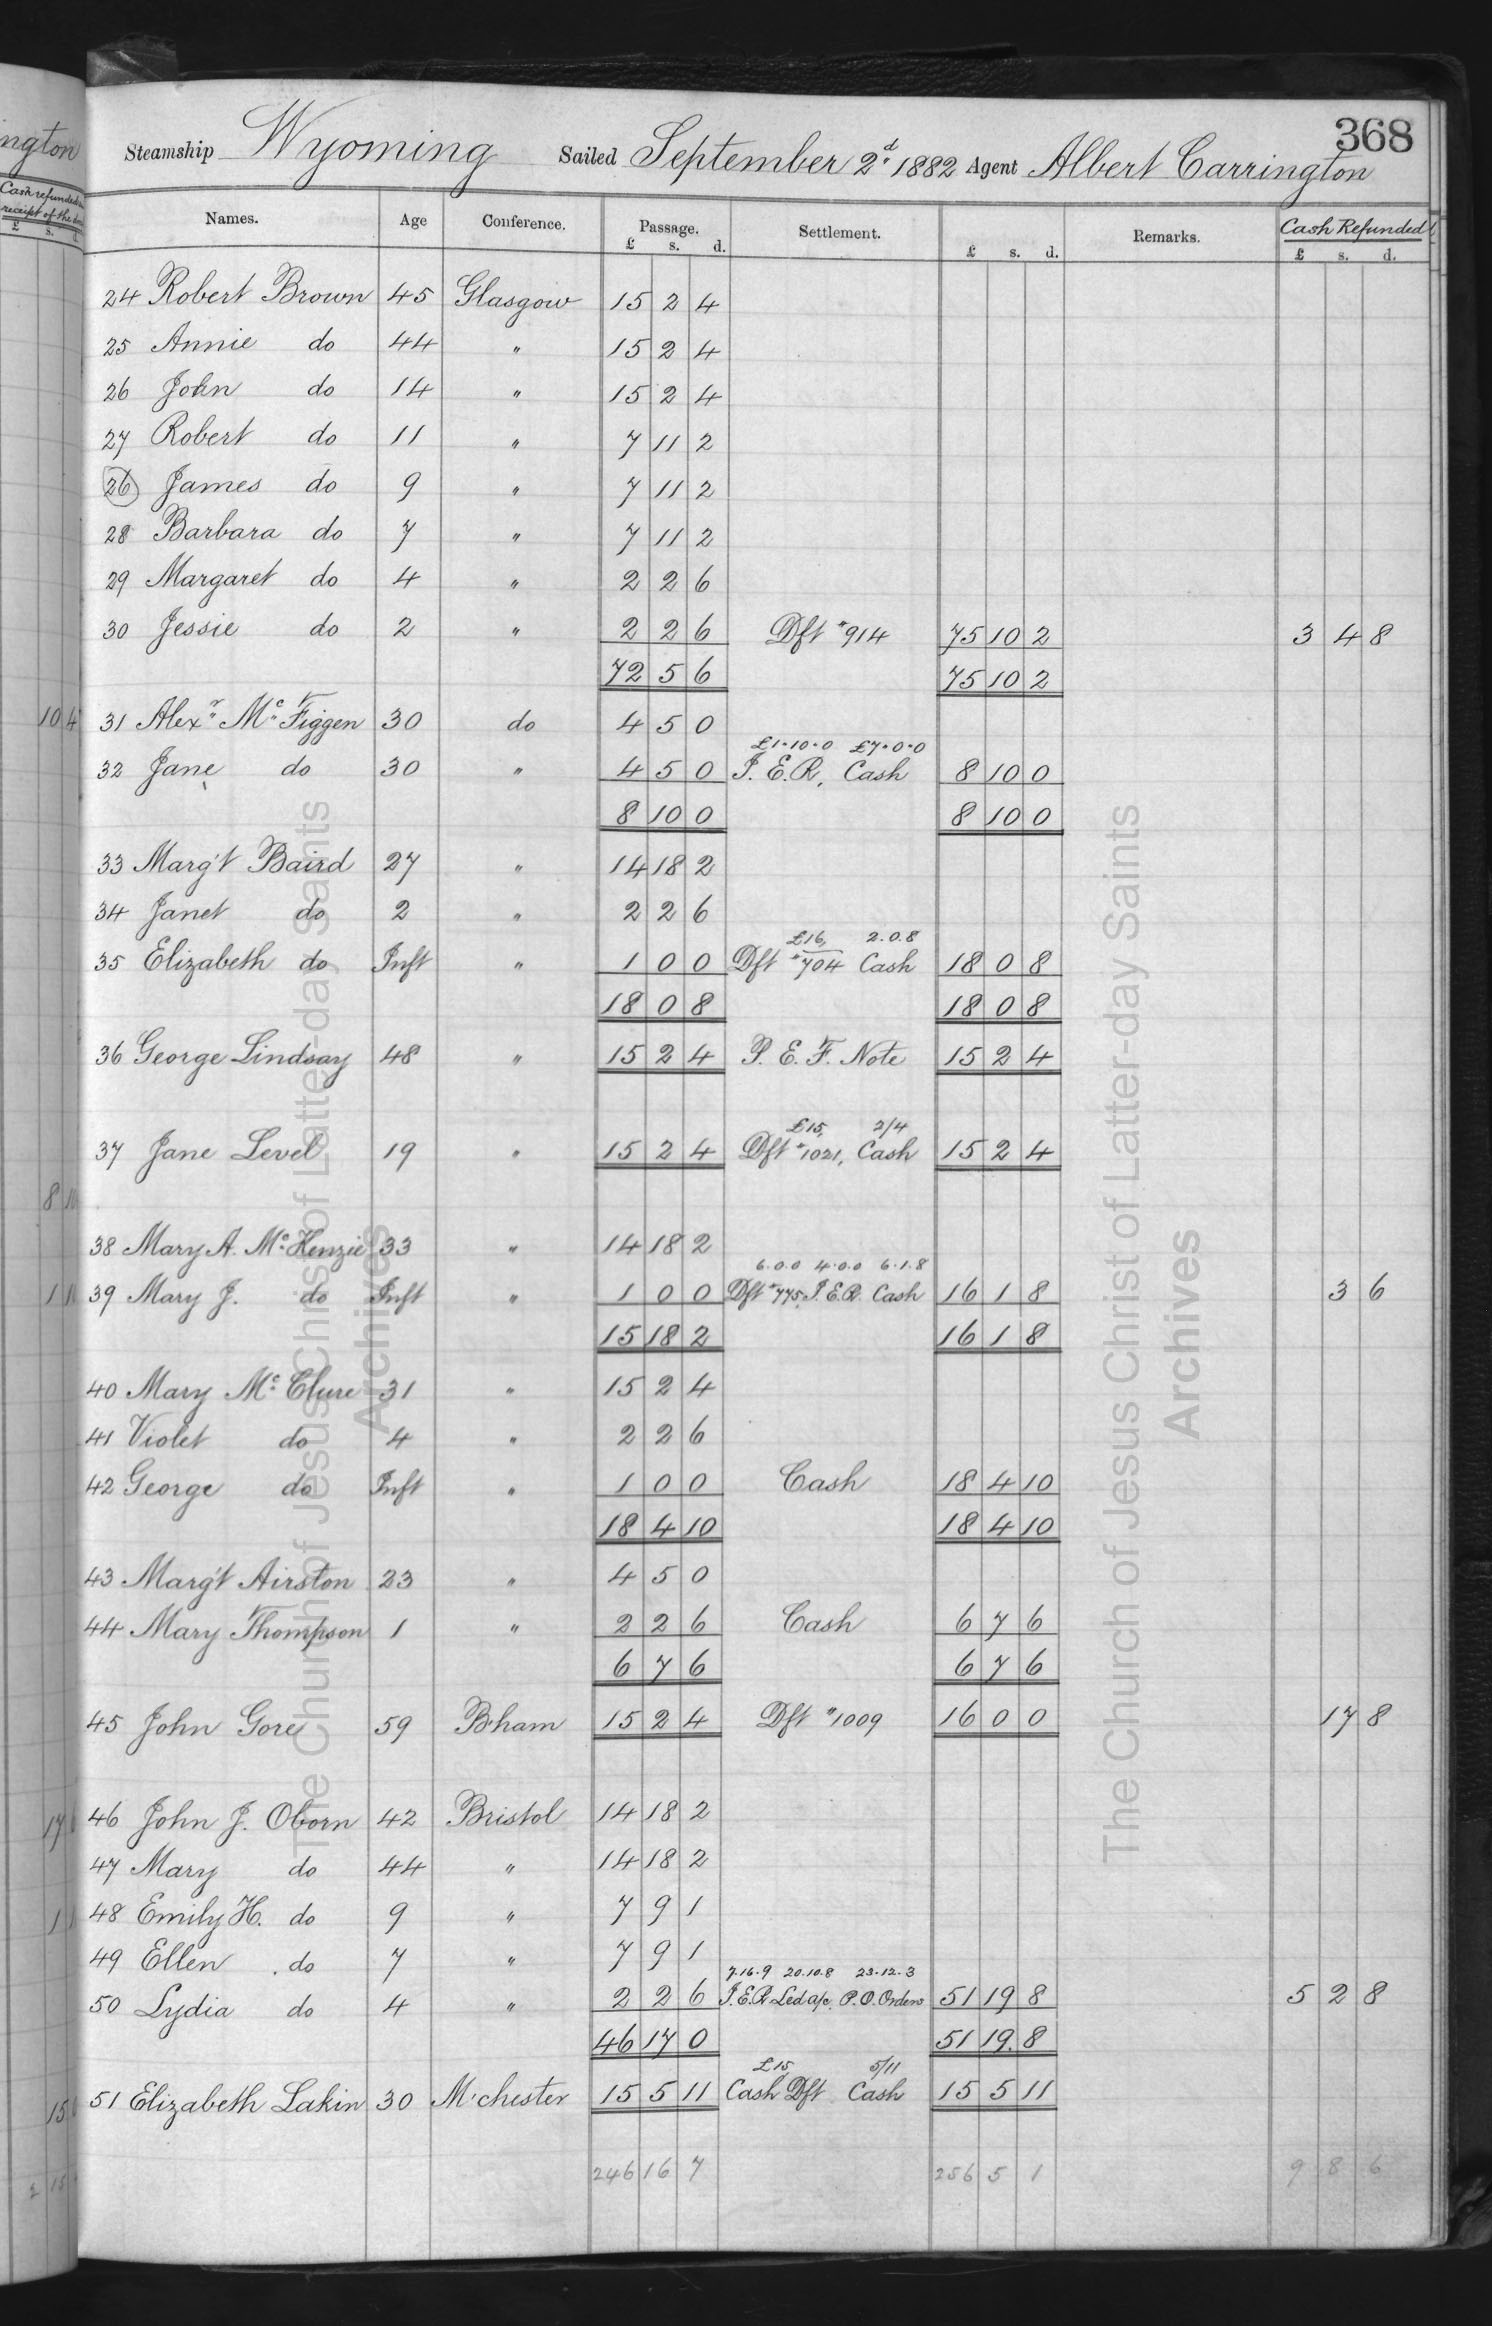 368
Steamship Wyoming Sailed September 2d 1882 Agent Albert Carrington
Names. Age Conference. Passage. £ s. d. Settlement. £ s. d. Remarks. Cash Refunded £ s. d.
24 Robert Brown 45 Glasgow 15 2 4
25 Annie do 44 " 15 2 4
26 John do 14 " 15 2 4
27 Robert do 11 " 7 11 2
26 James do 9 " 7 11 2
28 Barbara do 7 " 7 11 2
29 Margaret do 4 " 2 2 6
30 Jessie do 2 " 2 2 6 Dft "914 75 10 2 3 4 8
72 5 6 75 10 2
31 Alexr McFiggen 30 do 4 5 0
£1·10·0 £7·0·0
32 Jane do 30 " 4 5 0 I. E. R, Cash 8 10 0
8 10 0 8 10 0
33 Marg't Baird 27 " 14 18 2
34 Janet do 2 " 2 2 6
£16, 2.0.8
35 Elizabeth do Inft " 1 0 0 Dft "704 Cash 18 0 8
18 0 8 18 0 8
36 George Lindsay 48 " 15 2 4 P. E. F. Note 15 2 4
£15, 2/4
37 Jane Level 19 " 15 2 4 Dft "1021, Cash 15 2 4
38 Mary A. McKenzie 33 " 14 18 2
6.0.0 4.0.0 6.1.8
39 Mary J. do Inft " 1 0 0 Dft "775, I. E. R. Cash 16 1 8 3 6
15 18 2 16 1 8
40 Mary McClure 31 " 15 2 4
41 Violet do 4 " 2 2 6
42 George do Inft " 1 0 0 Cash 18 4 10
18 4 10 18 4 10
43 Marg't Airston 23 " 4 5 0
44 Mary Thompson 1 " 2 2 6 Cash 6 7 6
6 7 6 6 7 6
45 John Gore 59 B'ham 15 2 4 Dft "1009 16 0 0 17 8
46 John J. Oborn 42 Bristol 14 18 2
47 Mary do 44 " 14 18 2
48 Emily H. do 9 " 7 9 1
49 Ellen do 7 " 7 9 1
7.16.9 20.10.8 23.12.3
50 Lydia do 4 " 2 2 6 I.E.R Led a/c, P.O. Orders 51 19 8 5 2 8
46 17 0 51 19 8
£15 5/11
51 Elizabeth Lakin 30 M'chester 15 5 11 Cash Dft Cash 15 5 11
246 16 7 256 5 1 9 8 6
The Church of Jesus Christ of Latter-day Saints
Archives
The Church of Jesus Christ of Latter-day Saints
Archives
ngton
Cash refunded
receipt of the
£ s. d.